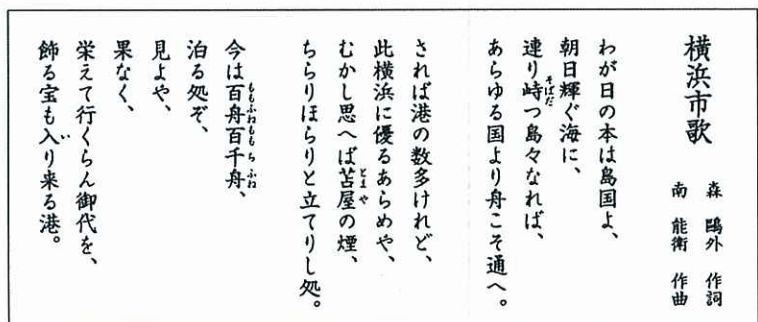 横浜市歌
森 鷗外 作詞
南 能衛 作曲
わが日の本は島国よ、
朝日輝ぐ海に、
連り峙つ島々なれば、
あらゆる国より舟こそ通へ。
されば港の数多けれど、
此横浜に優るあらめや、
むかし思へば苫屋の煙、
ちらりほらりと立てりし処。
今は百舟百千舟、
泊る処ぞ、
見よや、
果なく、
栄えて行くらん御代を、
飾る宝も入り来る港。